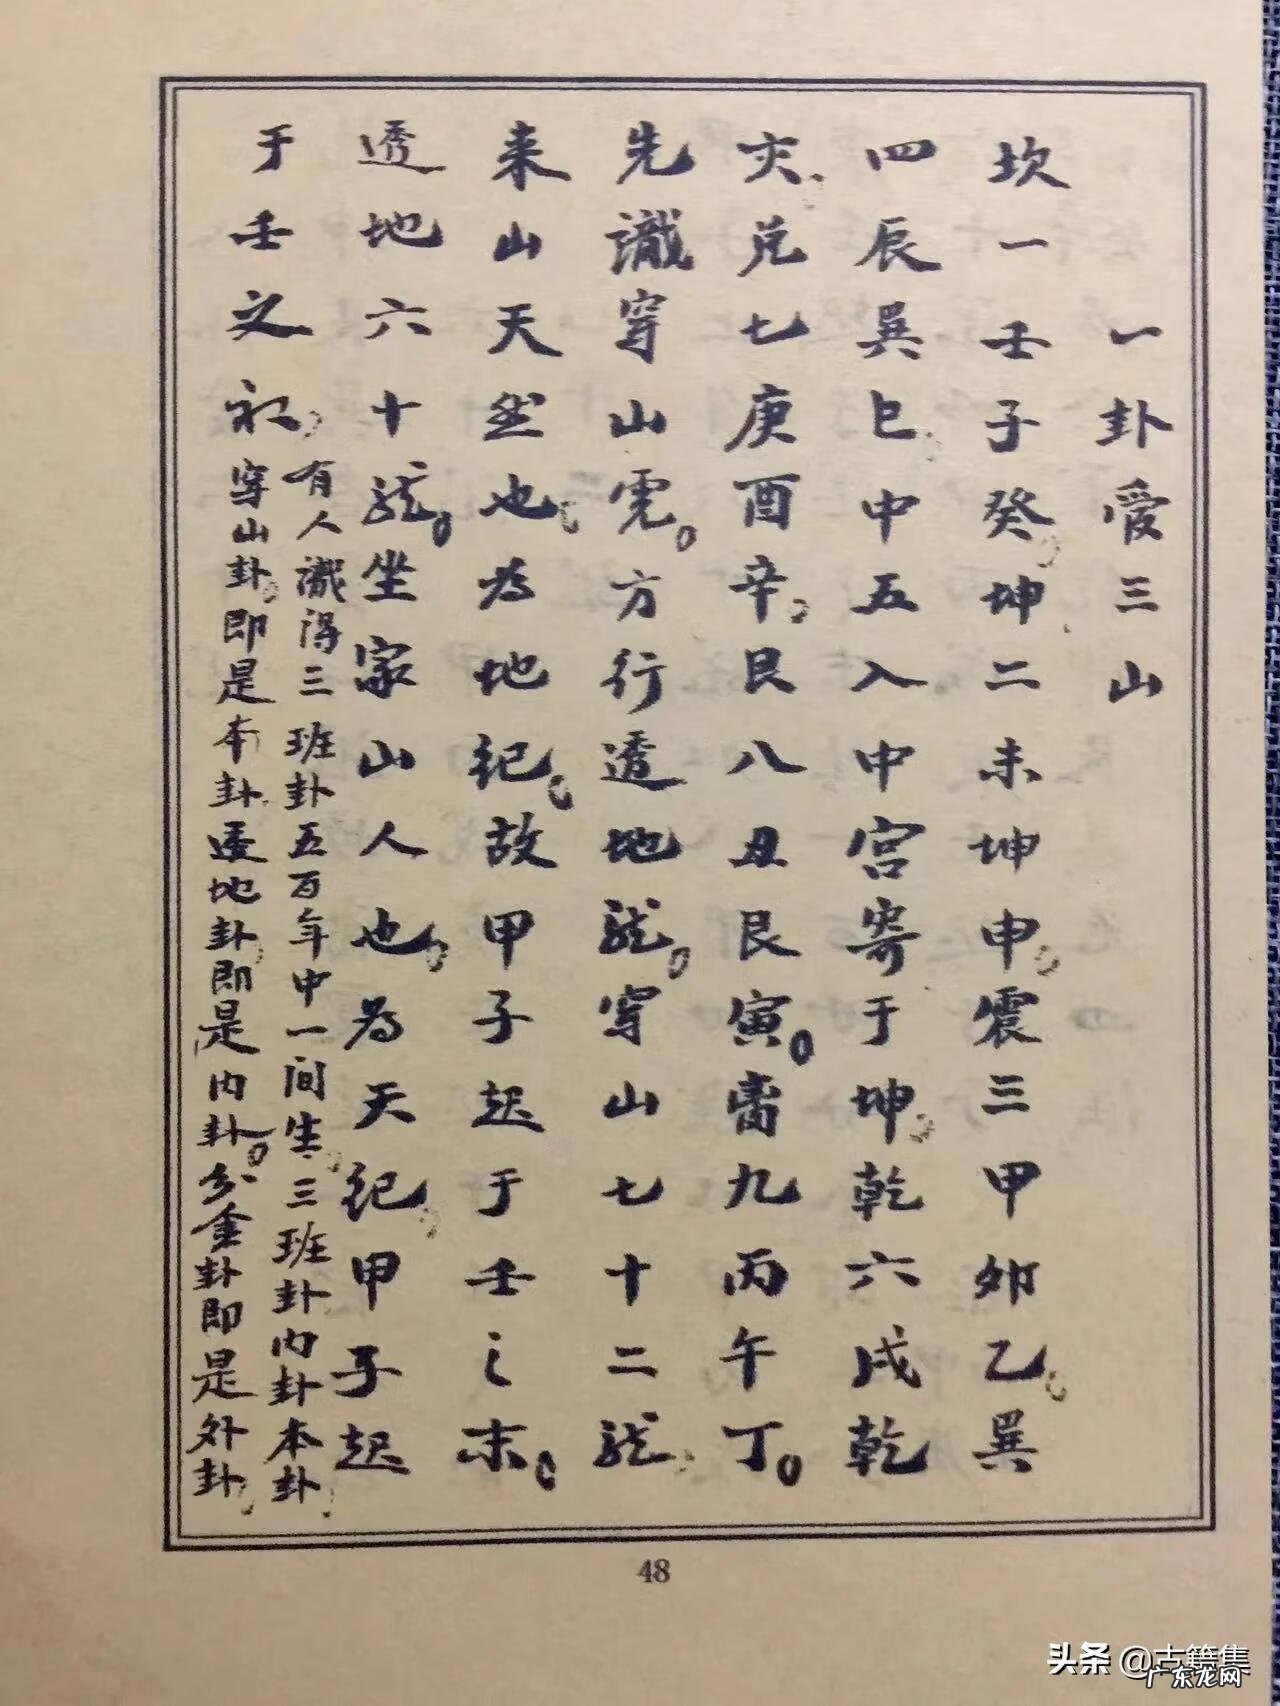 一卦爱三山
坎一壬子癸。坤二未坤申。震三甲卯乙。巽
四辰巽巳。中五入中宮寄于坤。乾六戌乾
亥。兑七庚酉辛。艮八丑艮寅。离九丙午丁。
先識穿山虎。方行透地龍。穿山七十二龍。
来山天然也。为地纪。故甲子起于壬之末。
透地六十龍。坐家山人也。为天纪。甲子起
于壬之初。
有人識得三班卦五百年中一间生。三班卦内卦本卦。
穿山卦。即是本卦透地卦。即是内卦。分金卦即是外卦。
48
头条 @古籍集
广东龙网